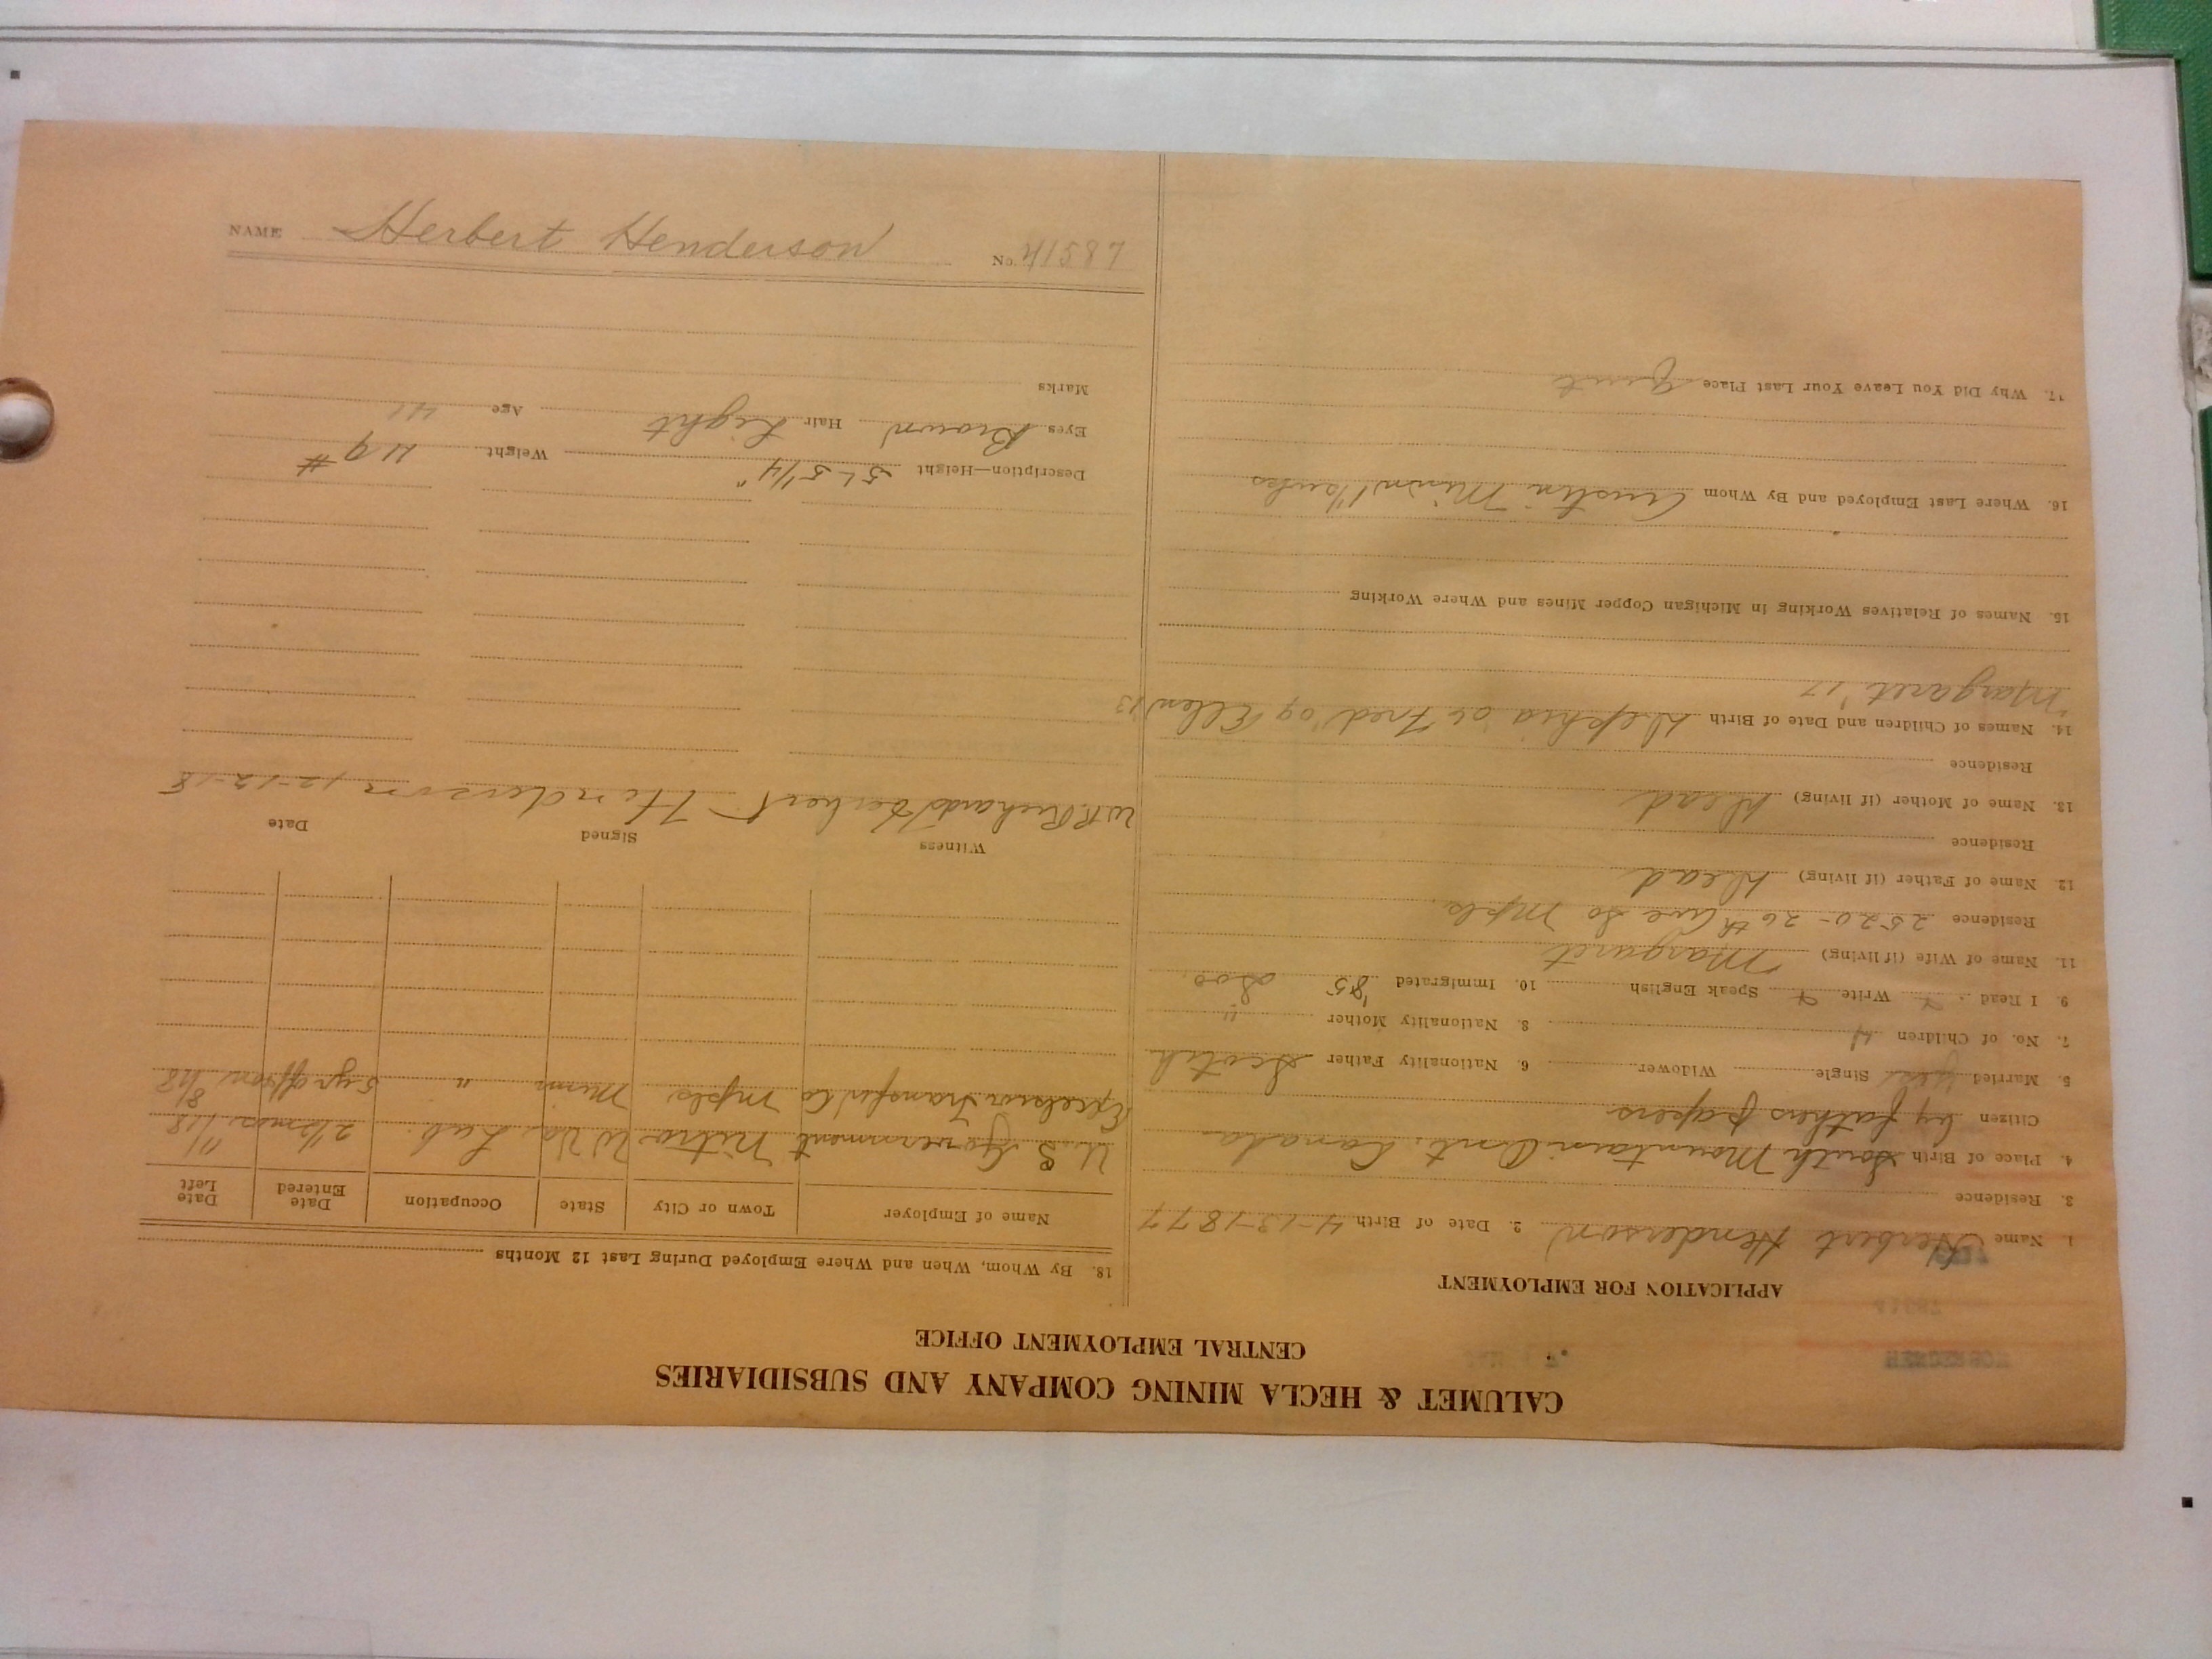 CALUMET & HECLA MINING COMPANY AND SUBSIDIARIES
CENTRAL EMPLOYMENT OFFICE
APPLICATION FOR EMPLOYMENT
1. Name Herbert Henderson 2. Date of Birth 4-13-1877
3. Residence
4. Place of Birth South Mountain Ont. Canada
Citizen by fathers papers
5. Married yes Single Widower 6. Nationality Father Scotch
7. No. of Children 4 8. Nationality Mother "
9. I Read Write Speak English 10. Immigrated '85 Soo.
11. Name of Wife (if living) Margaret
Residence 2520-26th Ave So Mpls.
12. Name of Father (if living) Dead
Residence
13. Name of Mother (if living) Dead
Residence
14. Names of Children and Date of Birth Fred '09 Ellen '13
Margaret '17
15. Names of Relatives Working in Michigan Copper Mines and Where Working
16. Where Last Employed and By Whom Austin Minn
17. Why Did You Leave Your Last Place Quit
18. By Whom, When and Where Employed During Last 12 Months
Name of Employer Town or City State Occupation Date Entered Date Left
U.S Government Nitro W Va. Lab. 2½ mos. 11/18
Excelsior Transfer Co Mpls Minn " 5 yr off & on 8/18
Witness Signed Date
W.P. Richards Herbert Henderson 12-12-18
Description—Height 5'-5¼" Weight 119 #
Eyes Brown Hair Light Age 41
Marks
NAME Herbert Henderson No. 41587